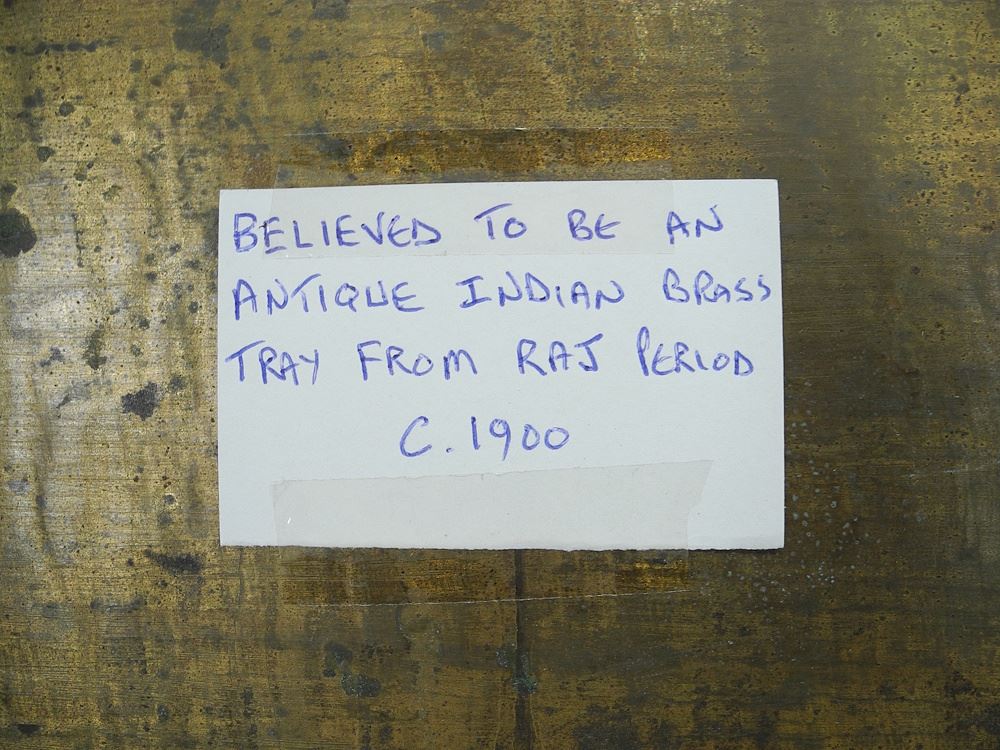 BELIEVED TO BE AN
ANTIQUE INDIAN BRASS
TRAY FROM RAJ PERIOD
C. 1900